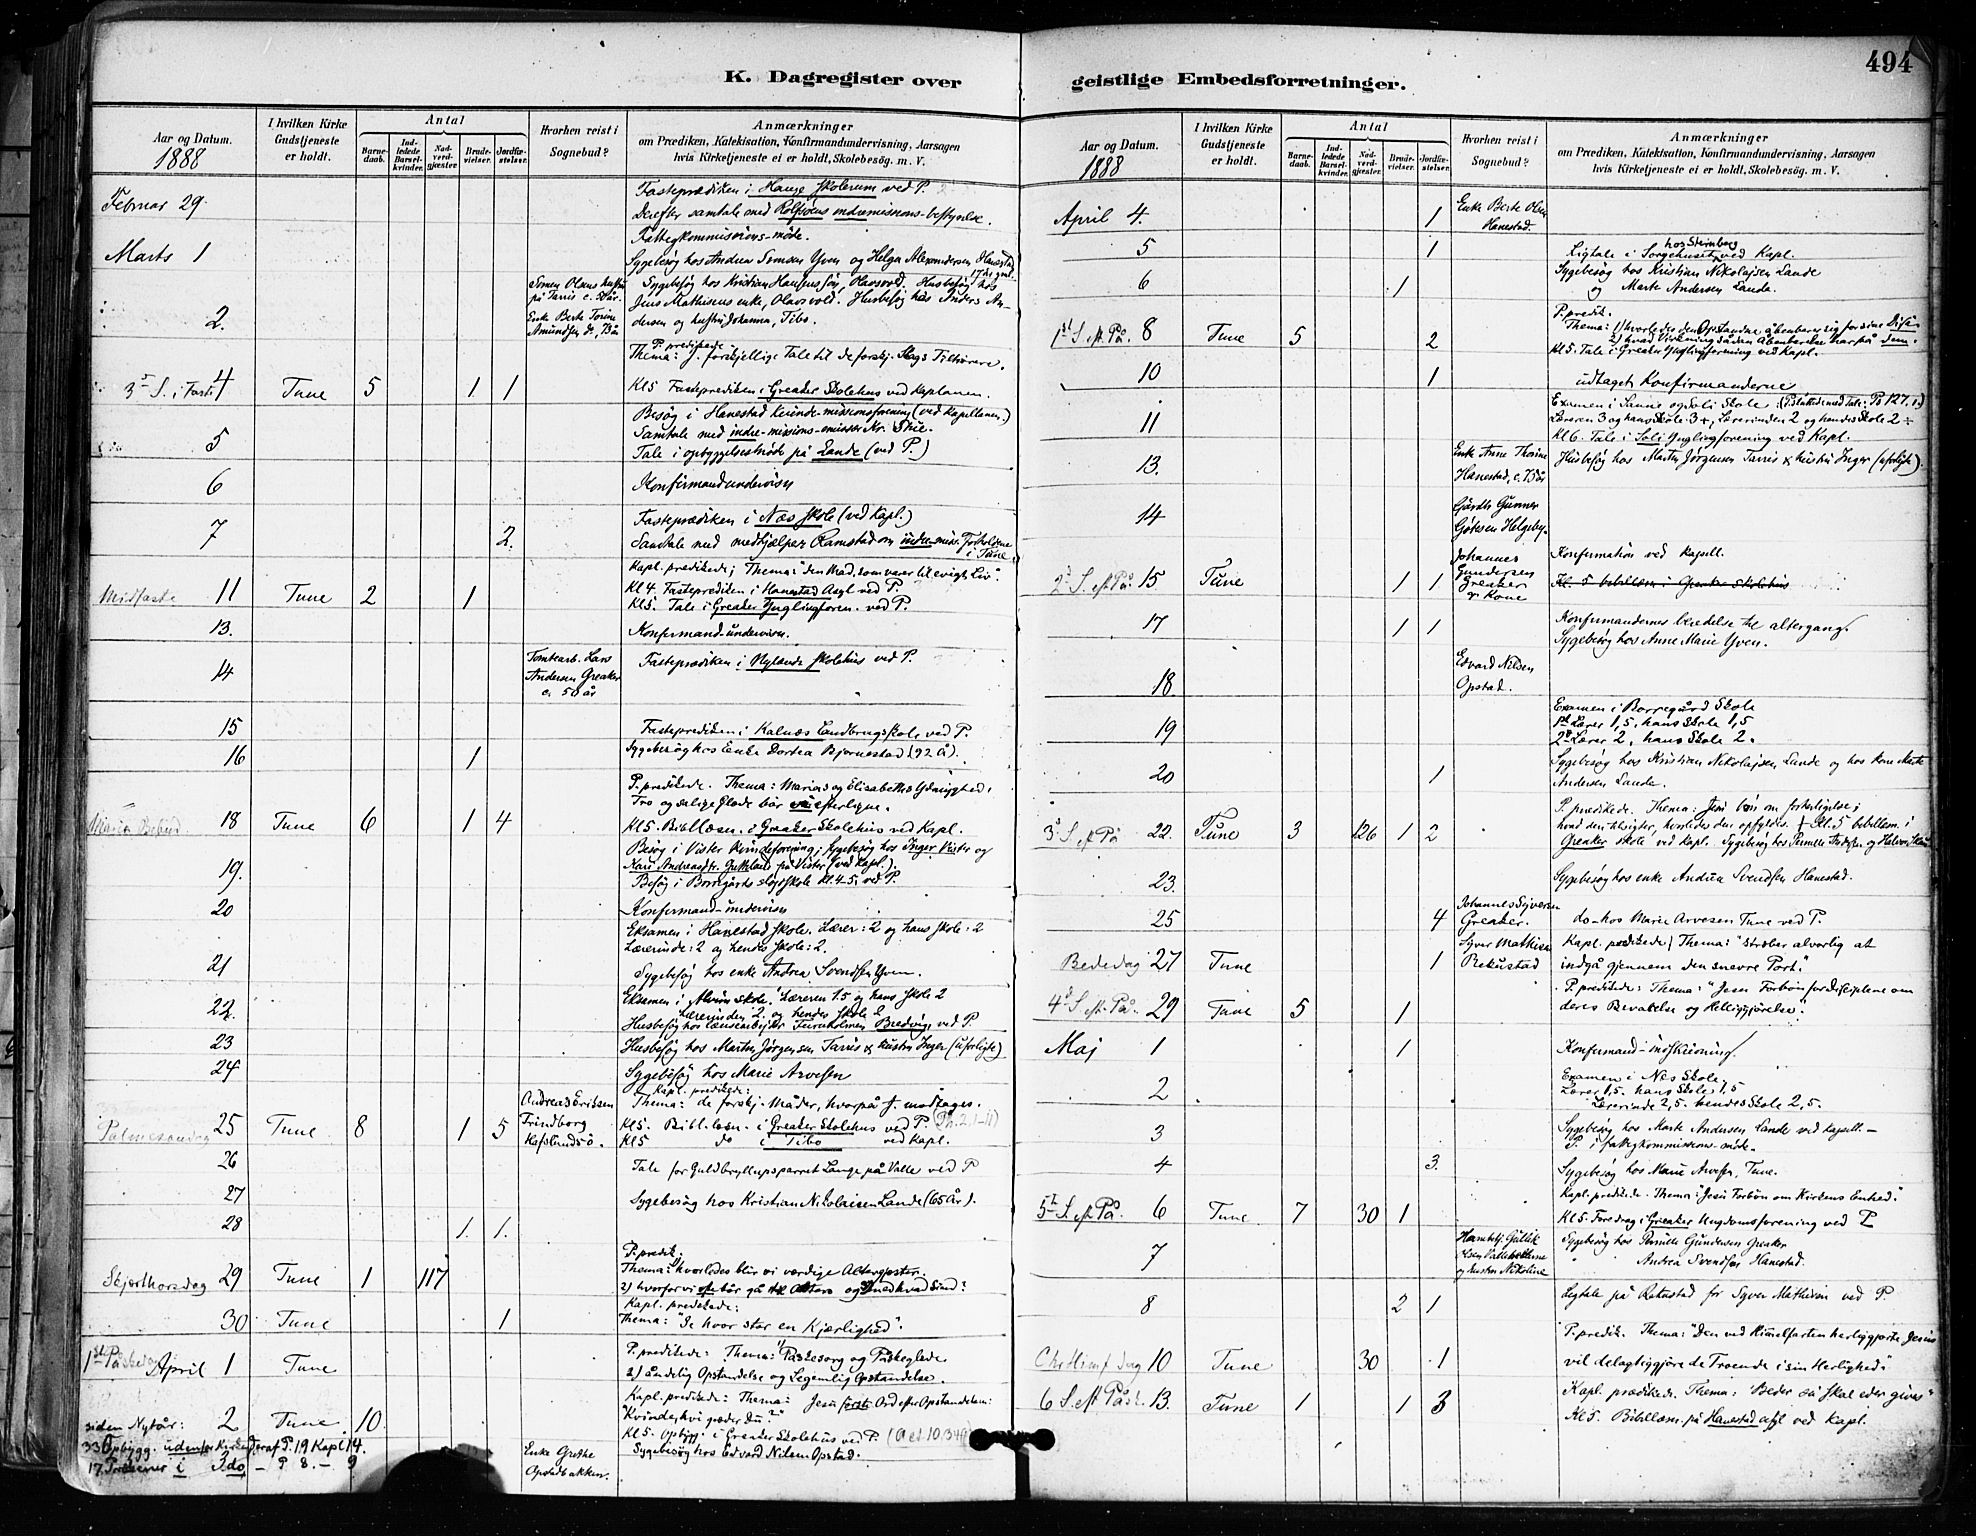 494
K. Dagregister over
Aar og Datum.
1888
I hvilken Kirke
Gudstjeneste
er holdt.
Antal
Barne-
daab.
Ind-
ledede
Barsel-
kvinder.
Nad-
verd-
gjæster.
Brude-
vielser.
Jordfæ-
stelser.
Hvorhen reist i
Sognebud?
Anmærkninger
om Prædiken, Katekisation, Konfirmandundervisning, Aarsagen
hvis Kirketjeneste ei er holdt, Skolebesög. m. V.
Februar 29
Fasteprædiken i Hauge skolerum ved P.
Derefter samtale med Rolfsøens indremissions-bestyrelse.
Marts 1
Fattigkommissions-møde.
Sygebesøg hos Andrea Svensen Yven og Helga Alexandersen Hanestad
2.
Sygebesøg hos Kristian Hansens søn, Olavsvold. Husbesøg hos
Jens Mathisens enke, Olavsvold. Husbesøg hos Anders An-
dersen og hustru Johanna, Tibo.
3 S. i Faste 4 Tune 5 1 1
P. predikede
Thema: J. forskjellige Tale til de forskj. Slags Tilhørere.
Kl 5 Fasteprediken i Greaker Skolehus ved Kaplanen.
5
Besøg i Hanestad kvinde-missionsforening (ved Kapellanen.)
Samtale med indre-missions-emissær Nr. Skie.
Tale i opbyggelsesmøde på Lande (ved P.)
6
Konfirmandundervisn.
7 2.
Fasteprædiken i Næs skole (ved Kapl.)
Samtale med medhjælper Ramstad om indre-miss. Forholdene
i Tune.
Midfaste 11 Tune 2 1
Kapl. predikede; Thema: "den Mad, som varer til evigt Liv".
Kl 4. Fasteprediken i Hanestad Asyl ved P.
Kl 5. Tale i Greaker Ynglingforen. ved P.
13.
Konfirmand-undervisn.
14
Tomtearb. Lars
Andersen Greaker
c. 50 år
Fasteprædiken i Nylande skolehus ved P.
15
Fasteprediken i Kalnæs Landbrugsskole ved P.
16 1
Sygebesøg hos Enke Dortea Bjørnestad (92 År).
Maria Bebud. 18 Tune 6 1 4
P. predikede. Thema: Marias og Elisabeths Ydmyghed,
Tro og salige Glæde bør vi efterligne.
Kl 5. Bibllæsn. i Greaker Skolehus ved Kapl.
19.
Besøg i Vister Kvindeforening; Sygebesøg hos Inger Vister og
Besøg i Borregårds sløjdskole kl. 4-5, ved P.
20
Konfirmand-undervisn
21
Eksamen i Hanestad skole. Lærer: 2 og hans skole: 2
Lærerinde: 2 og hendes skole: 2.
Sygebesøg hos enke Andrea Svendsen Yven.
22
Eksamen i Alvim skole. Læreren 1.5 og hans skole 2
Lærerinden 2. og hendes skole 2
23
Husbesøg hos Martin Jørgensen Tarris & hustru Inger (uforligte)
24
Sygebesøg hos Marie Arvesen
Palmesøndag 25 Tune 8 1 5
Andreas Eriksen
Trindborg
Kafslundsø.
Kapl. predikede:
Thema: de forskj. Måder, hvorpå J. modtages.
Kl 5. Bibl. læsn. i Greaker Skolehus ved P. (Ph. 2, 1-11)
Kl 5 do i Tibo ved Kapl.
26
Tale for Guldbryllupsparret Lange på Valle ved P
27
Sygebesøg hos Kristian Nikolaisen Lande (65 År).
28 1. 1.
Skjærthorsdag 29 Tune 1 117
P. predik.
Thema: 1) hvorledes blir vi værdige Altergjester.
30 Tune 1
Kapl. predikede:
Thema: "Se hvor stor en Kjærlighed".
1ste Påskedag April 1 Tune
P. predikede: Thema: 1) Påskesorg og Påskeglæde
2) åndelig Opstandelse og Legemlig Opstandelse.
2 Tune 10
Kapl. predikede: Thema: Jesu første Ord efter Opstandelsen:
"Kvinde, hvi græder du?"
Kl 5. Opbygg. i Greaker Skolehus ved P. (Act 10.34)
siden Nytår:
33 Opbygg. udenfor Kirken deraf P. 19 Kapl. 14.
17 Prækener i do - P 8. - 9
Enke Grethe
Opstadbakken.
Sygebesøg hos Edvard Nilsen Opstad.
geistlige Embedsforretninger.
Aar og Datum.
1888
I hvilken Kirke
Gudstjeneste
er holdt.
Antal
Barne-
daab.
Ind-
ledede
Barsel-
kvinder.
Nad-
verd-
gjæster.
Brude-
vielser.
Jordfæ-
stelser.
Hvorhen reist i
Sognebud?
Anmærkninger
om Prædiken, Katekisation, Konfirmandundervisning, Aarsagen
hvis Kirketjeneste ei er holdt, Skolebesög. m. V.
April 4. 1
Enke Berte Olsen
Hanestad.
5 1
hos Steinberg
Ligtale i Sørgehuset ved Kapl.
6 1
Sygebesøg hos Kristian Nikolajsen Lande
og Marte Andersen Lande.
1ste S. eft. På. 8 Tune 5 2
P. predik.
Kl 5. Tale i Greaker Ynglingforening ved Kapl.
10 1
udtaget Konfirmanderne
11
Læreren 3 og hans skole 3+, Lærerinden 2 og hendes skole 2÷
Kl 6. Tale i Soli Ynglingforening ved Kapl.
13.
Enke Anne Thorine
Hanestad, c. 73 år
Husbesøg hos Martin Jørgensen Tarris & hustru Inger (uforligte).
14
2 S. eft På 15 Tune 1 1
Johannes
Gundersen
Greaker
og Kone
Konfirmation ved Kapell.
Kl. 5 bibellæsn i Greaker Skolehus
17 1 1
Konfirmandernes beredelse til altergang.
Sygebesøg hos Anne Marie Yven.
18
Edvard Nilsen
Opstad.
19
Examen i Borregård Skole
1ste Lærer 1,5, hans Skole 1,5
2den Lærer 2, hans Skole 2.
20 1
Sygebesøg hos Kristian Nikolajsen Lande og hos kone Marte
Andersen Lande.
3 S. eft På 22. Tune 3 126 1 2
P. predikede. Thema: Jesu bøn om forherligelse;
hvad den tilsigter, hvorledes den opfyldes. + Kl. 5 bibellæsn. i
23.
Sygebesøg hos enke Andrea Svendsen Hanestad.
25 4
Johannes Syversen
Greaker.
do - hos Marie Arvesen Tune ved P.
Bededag 27 Tune 1
Syver Mathisen
Rekustad
Kapl. predikede; Thema: "Stræber alvorlig at
indgå gjennem den snevre Port."
4 S. eft. På. 29 Tune 5 1
P. predikede: Thema: "Jesu Forbøn for Disciplene om
deres Bevarelse og Helliggjørelse".
Maj 1 1
Konfirmand-indskrivning.
2
Examen i Næs Skole,
Lærer 1,5. hans Skole 1,5
Lærerinde 2,5. hendes Skole 2,5.
3
Sygebesøg hos Marte Andersen Lande ved Kapell. -
P. i fattigkommissions-møde.
4 3.
Sygebesøg hos Marie Arvesen, Tune.
5te S. eft På. 6 Tune 7 30 1
Kapl. predikede. Thema: "Jesu Forbøn om Kirkens Enhed."
Kl 5. Foredrag i Greaker Ungdomsforening ved P
7
Sygebesøg hos Pernille Gundersen Greaker
" Andrea Svendsen Hanestad.
8 2 1
Ligtale på Rekustad for Syver Mathisen ved P.
Chr. Himf. dag 10 Tune 30 1
P. predik. Thema: "Den ved Himmelfarten herliggjorte Jesus
vil delagtiggjøre de Troende i sin Herlighed."
6 S. eft Påsk. 13. Tune 1 1 3
Kapl. prædikede. Thema: "Beder så skal eder gives"
Kl 5. Bibellæsn. på Hanestad asyl ved Kapl.